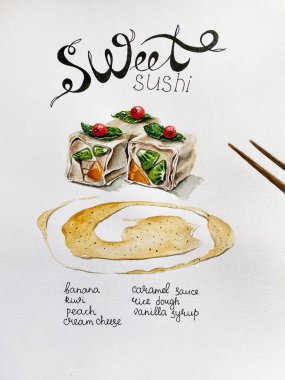 Sweet
sushi
banana
kiwi
peach
cream cheese
caramel sauce
rice dough
vanilla syrup